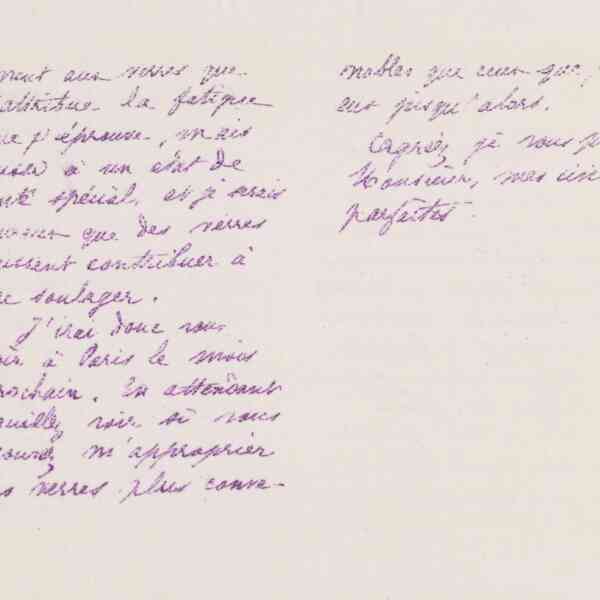 ment aux verres que
attribue la fatigue
ue j'éprouve, mais
à un état de
nté spécial, et je serais
que des verres
uissent contribuer à
e soulager.
J'irai donc vous
oir à Paris le mois
rochain. En attendant
euillez voir si vous
ouvez m'approprier
s verres plus conve-
nables que ceux que j
eus jusqu'alors.
Agréez, je vous p
Monsieur, mes
parfaites.